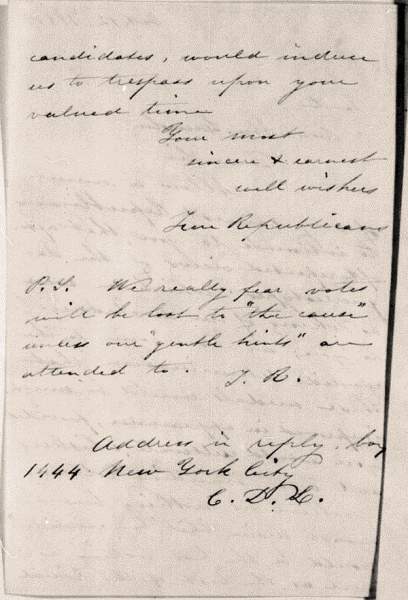 candidates, would induce
us to trespass upon your
valued time
Your most
sincere & earnest
well wishers
True Republicans
P.S. We really fear votes
will be lost to "the cause"
unless our "gentle hints" are
attended to. T. R.
Address in reply box
1444 New York City
C. D. L.